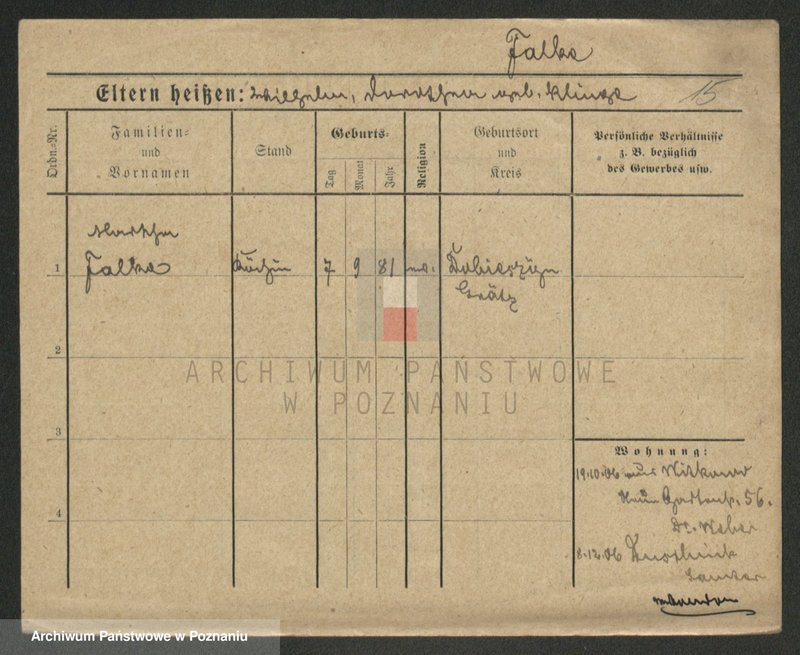 Falke
Eltern heißen: Wilhelm, Dorothea geb. Klinge
15
Ordn.-Nr.
Familien- und Vornamen
Stand
Geburts-
Tag
Monat
Jahr
Religion
Geburtsort und Kreis
Persönliche Verhältnisse
z. B. bezüglich
des Gewerbes usw.
Martha
1 Falke Köchin 7 9 81
Grätz
2
3
4
Wohnung:
19.10.06 aus Witkowo
56.
Dr. Weber
8.12.06
ARCHIWUM PAŃSTWOWE
W POZNANIU
Archiwum Państwowe w Poznaniu